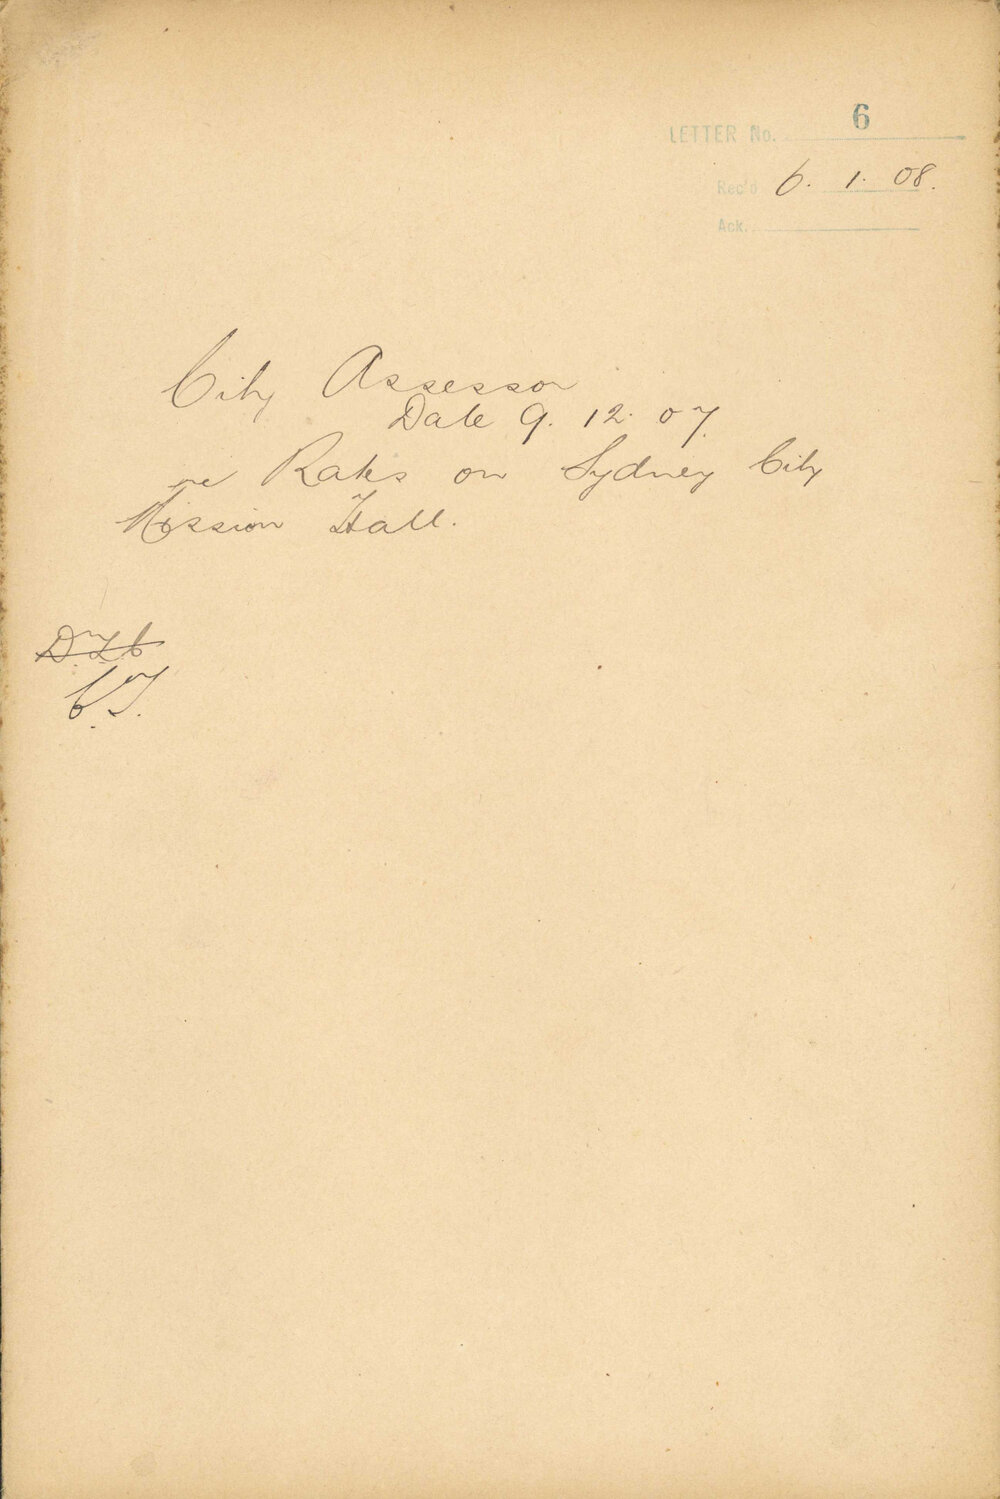 LETTER No. 6
Rec'd 6. 1. 08.
Ack.
City Assessor
Date 9. 12. 07.
re Rates on Sydney City
Mission Hall.
C.T.